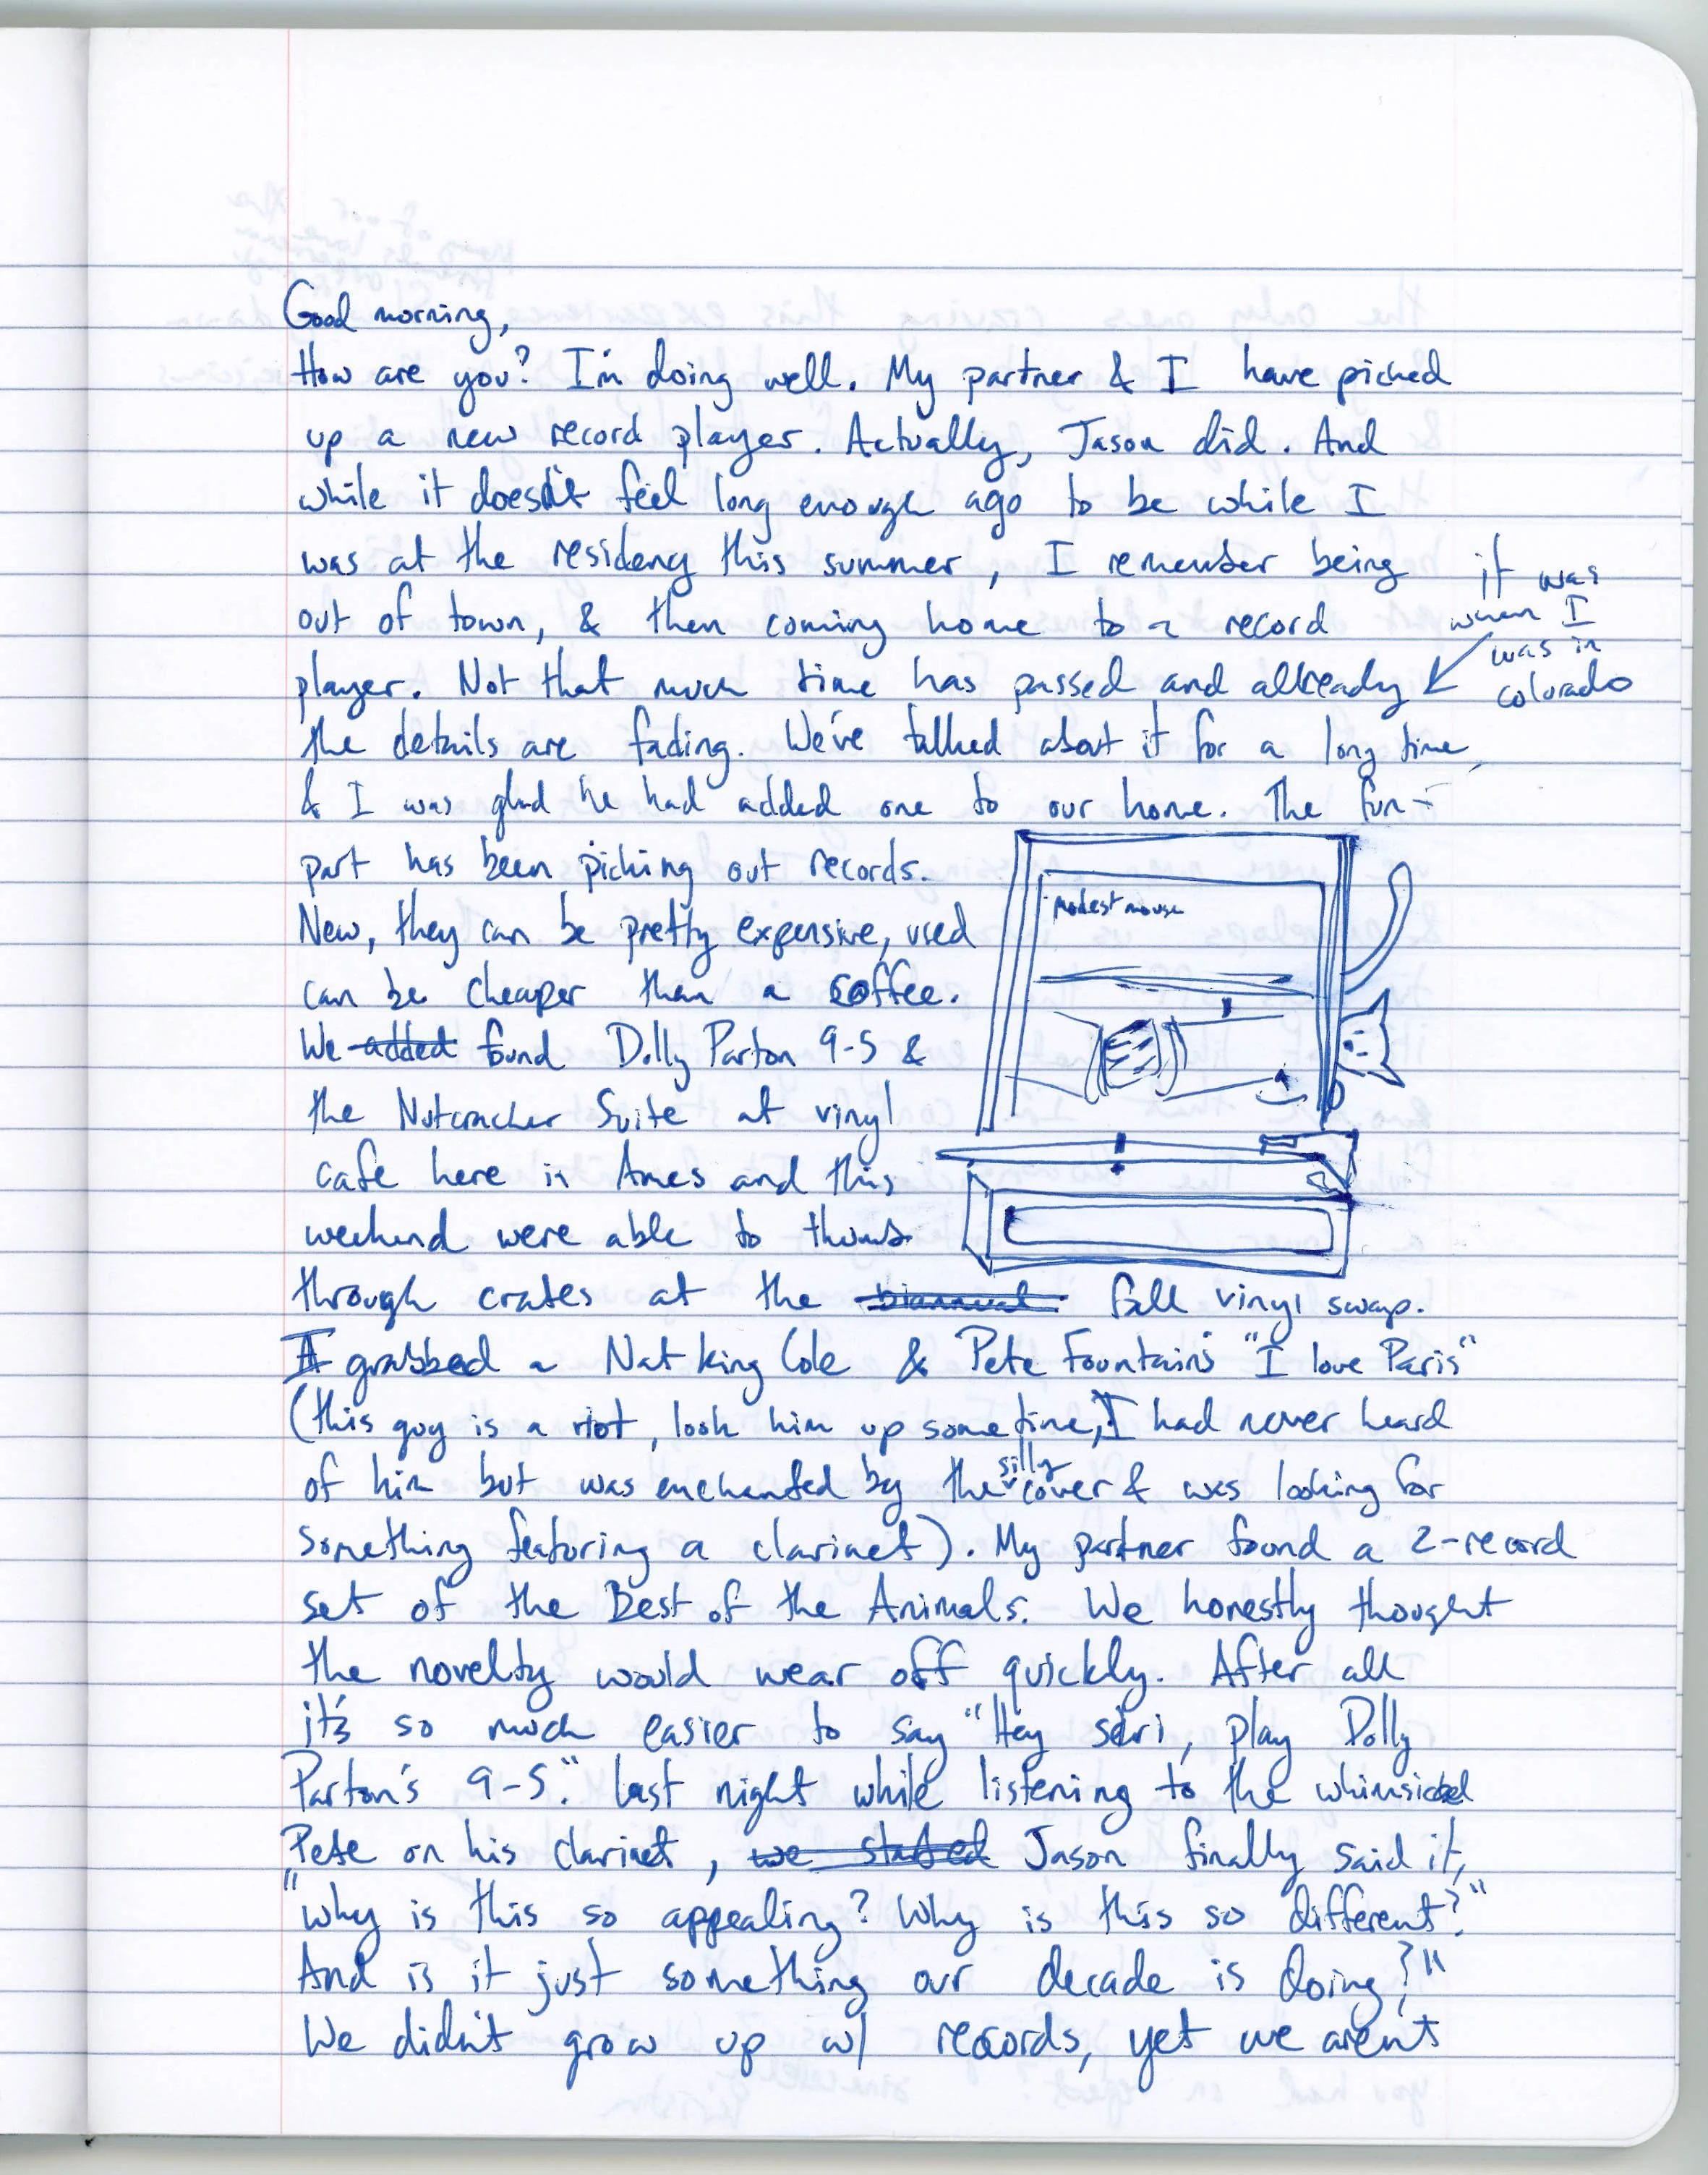 Good morning,
How are you? I'm doing well. My partner & I have picked
up a new record player. Actually, Jason did. And
while it doesn't feel long enough ago to be while I
was at the residency this summer, I remember being
out of town, & then coming home to a record
player. Not that much time has passed and allready
it was
when I
was in
colorado
the details are fading. We've talked about it for a long time,
& I was glad he had added one to our home. The fun-
part has been picking out records.
modest mouse
New, they can be pretty expensive, used
can be cheaper than a coffee.
We added found Dolly Parton 9-5 &
the Nutcracker Suite at vinyl
cafe here in Ames and this
weekend were able to thumb
through crates at the biannual fall vinyl swap.
I grabbed a Nat king Cole & Pete Fountain's "I love Paris"
(this guy is a riot, look him up some time, I had never heard
of him but was enchanted by the silly cover & was looking for
something featuring a clarinet). My partner found a 2-record
set of the Best of the Animals. We honestly thought
the novelty would wear off quickly. After all
it's so much easier to say "Hey siri, play Dolly
Parton's 9-5." last night while listening to the whimsical
Pete on his clarinet, we started Jason finally said it,
"why is this so appealing? Why is this so different?"
And is it just something our decade is doing?"
We didn't grow up w/ records, yet we aren't